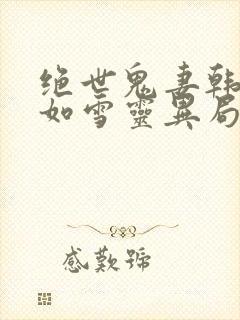 绝世鬼妻韩
如雪靈異局
感歎號